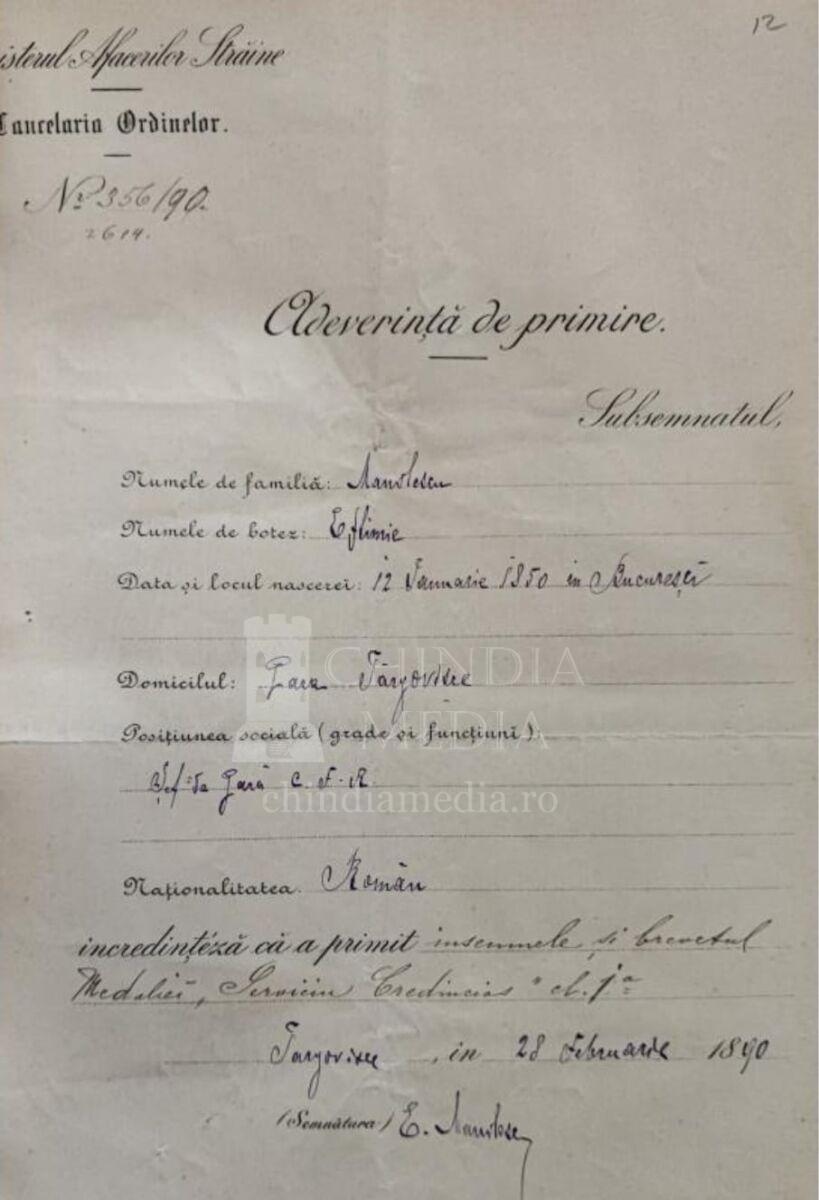 12
isterul Afacerilor Străine
Cancelaria Ordinelor.
No 356/90.
2614.
Adeverință de primire.
Subsemnatul,
Numele de familiă: Manolescu
Numele de botez: Eftimie
Data și locul nascereĭ: 12 Ianuarie 1850 in Bucureștĭ
CHINDIA
MEDIA
Domicilul: Gara Târgoviște
Posițiunea socială (grade și funcțiunĭ):
Șef de Gară C. F. R.
chindiamedia.ro
Naționalitatea. Român
incredințéză că a primit insemnele și brevetul
Medalieĭ „Serviciu Credincios" cl. Ia
Targoviste, in 28 Februarie 1890
(Semnătura) E. Manolescu